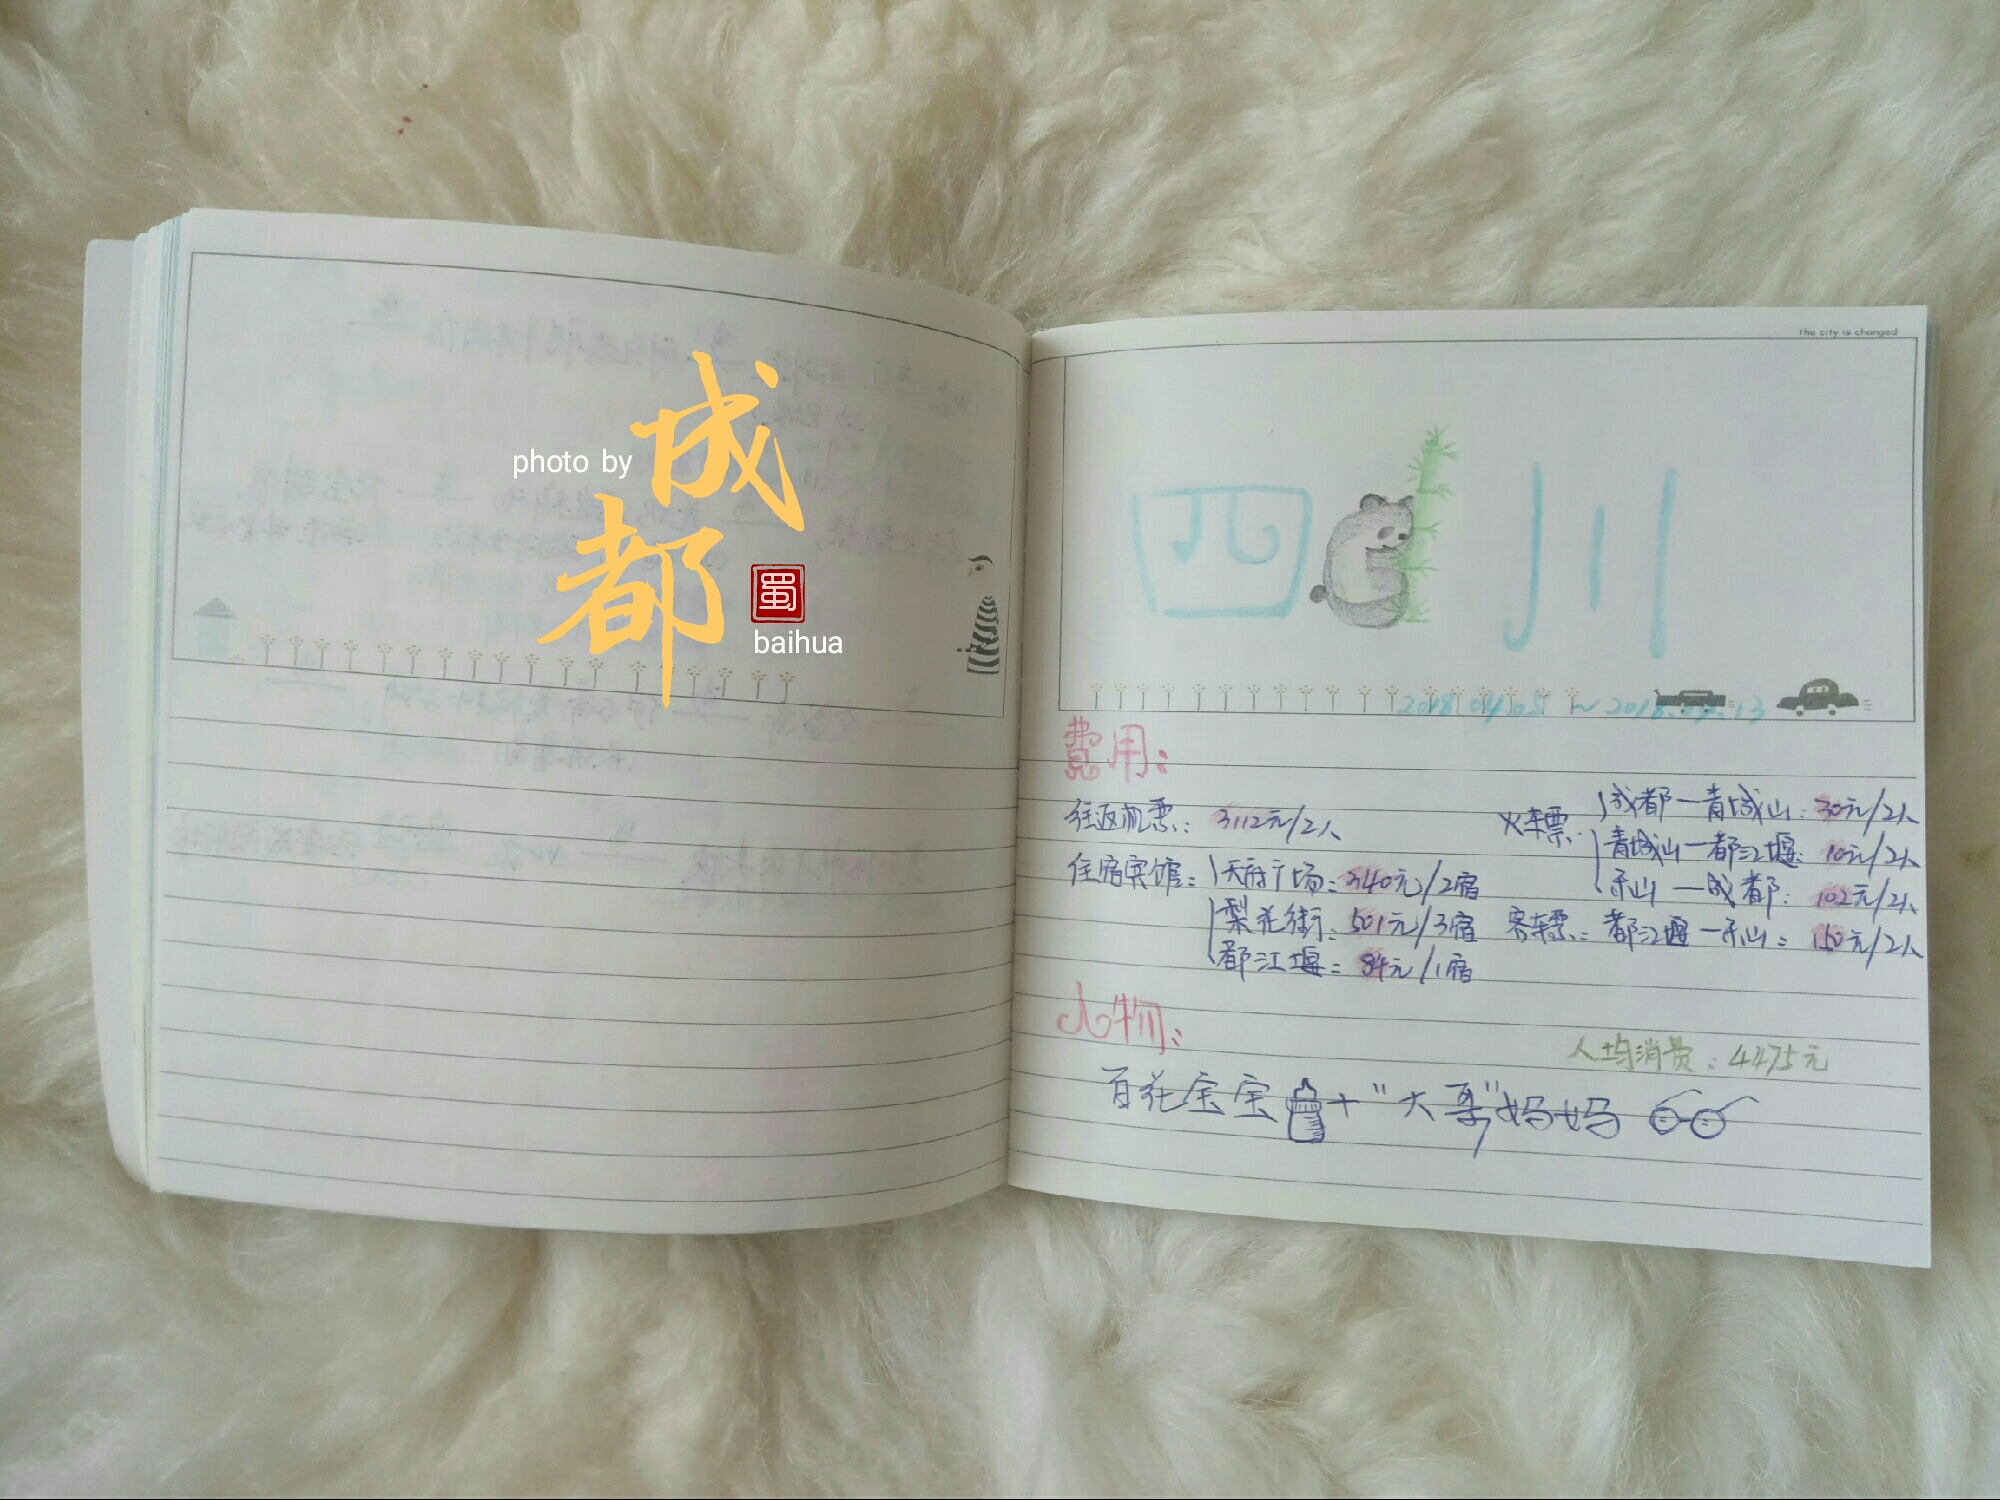 photo by
成都
蜀
baihua
the city is changed
四川
2018.04.05 ~ 2018.04.13
费用：
往返机票：3112元/2人
住宿宾馆：天府广场：340元/2宿
梨花街：501元/3宿
都江堰：84元/1宿
火车票：成都—青城山：30元/2人
青城山—都江堰：10元/2人
乐山—成都：102元/2人
客车票：都江堰—乐山：元/2人
人物：
人均消费：4475元
百花宝宝+“大哥”妈妈